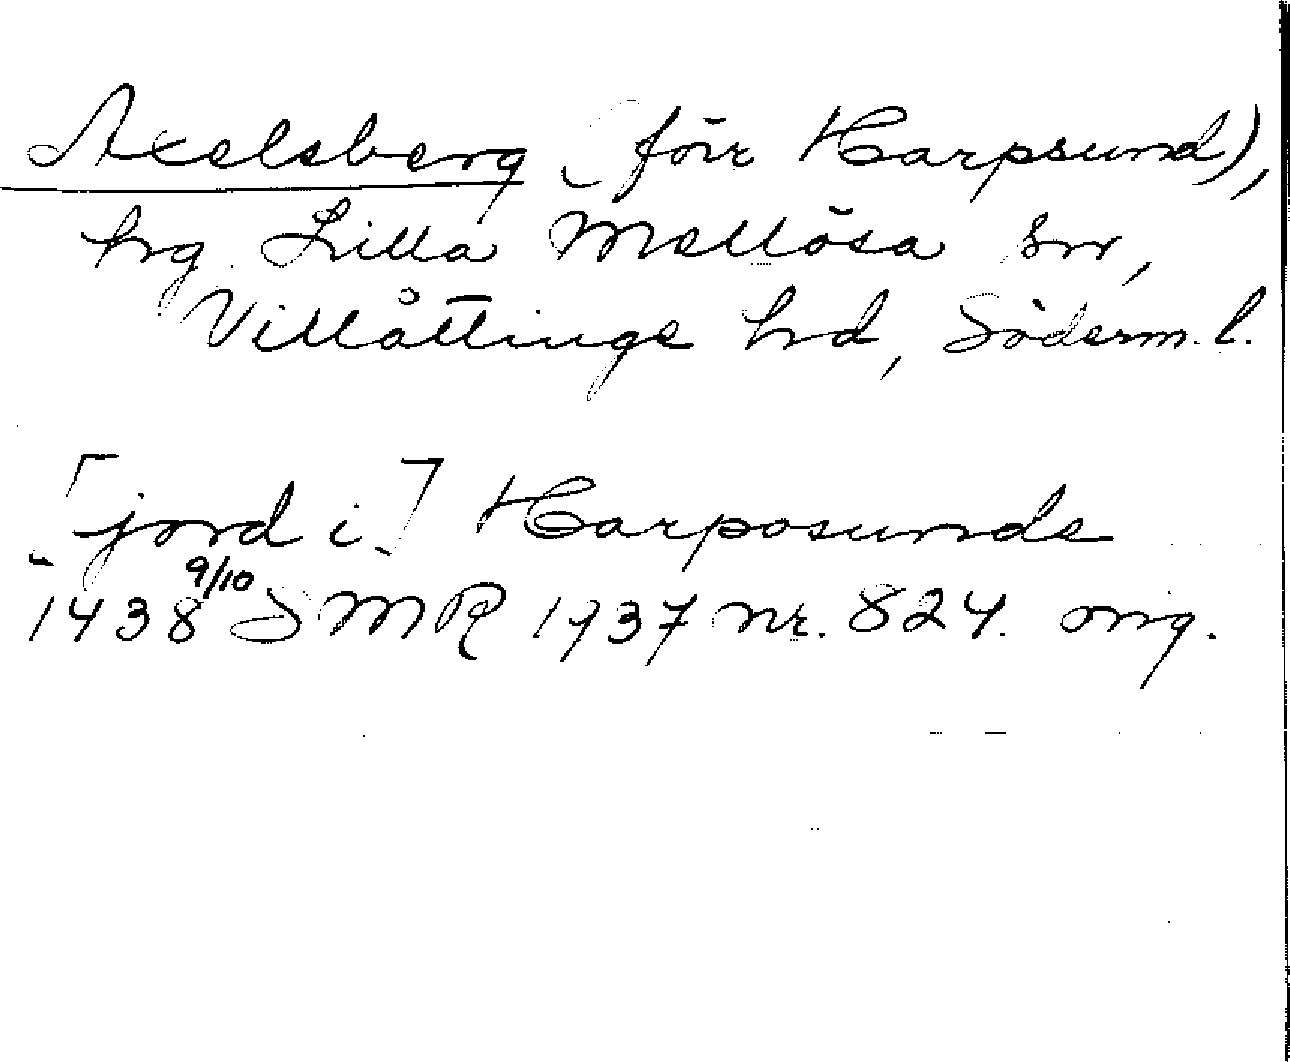 Axelsberg (förr Harpsund),
hrg. Lilla Mellösa sn,
Villåttinge hd, Söderm. l.
[jord i] Harposunde
1438 9/10 SMR 1937 nr. 824. orig.